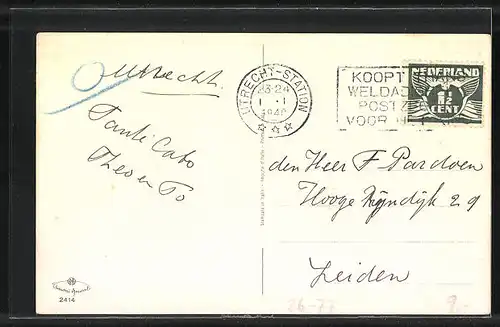 Utrecht.
Tante Cato
Theo en To
UTRECHT-STATION
23-24
1.1
1940
KOOPT
WELDA
POSTZ
VOOR H
NEDERLAND
1½
CENT
den Heer F. Pardoen
Hooge Rijndijk 29
Leiden
2414
26-77
9.-